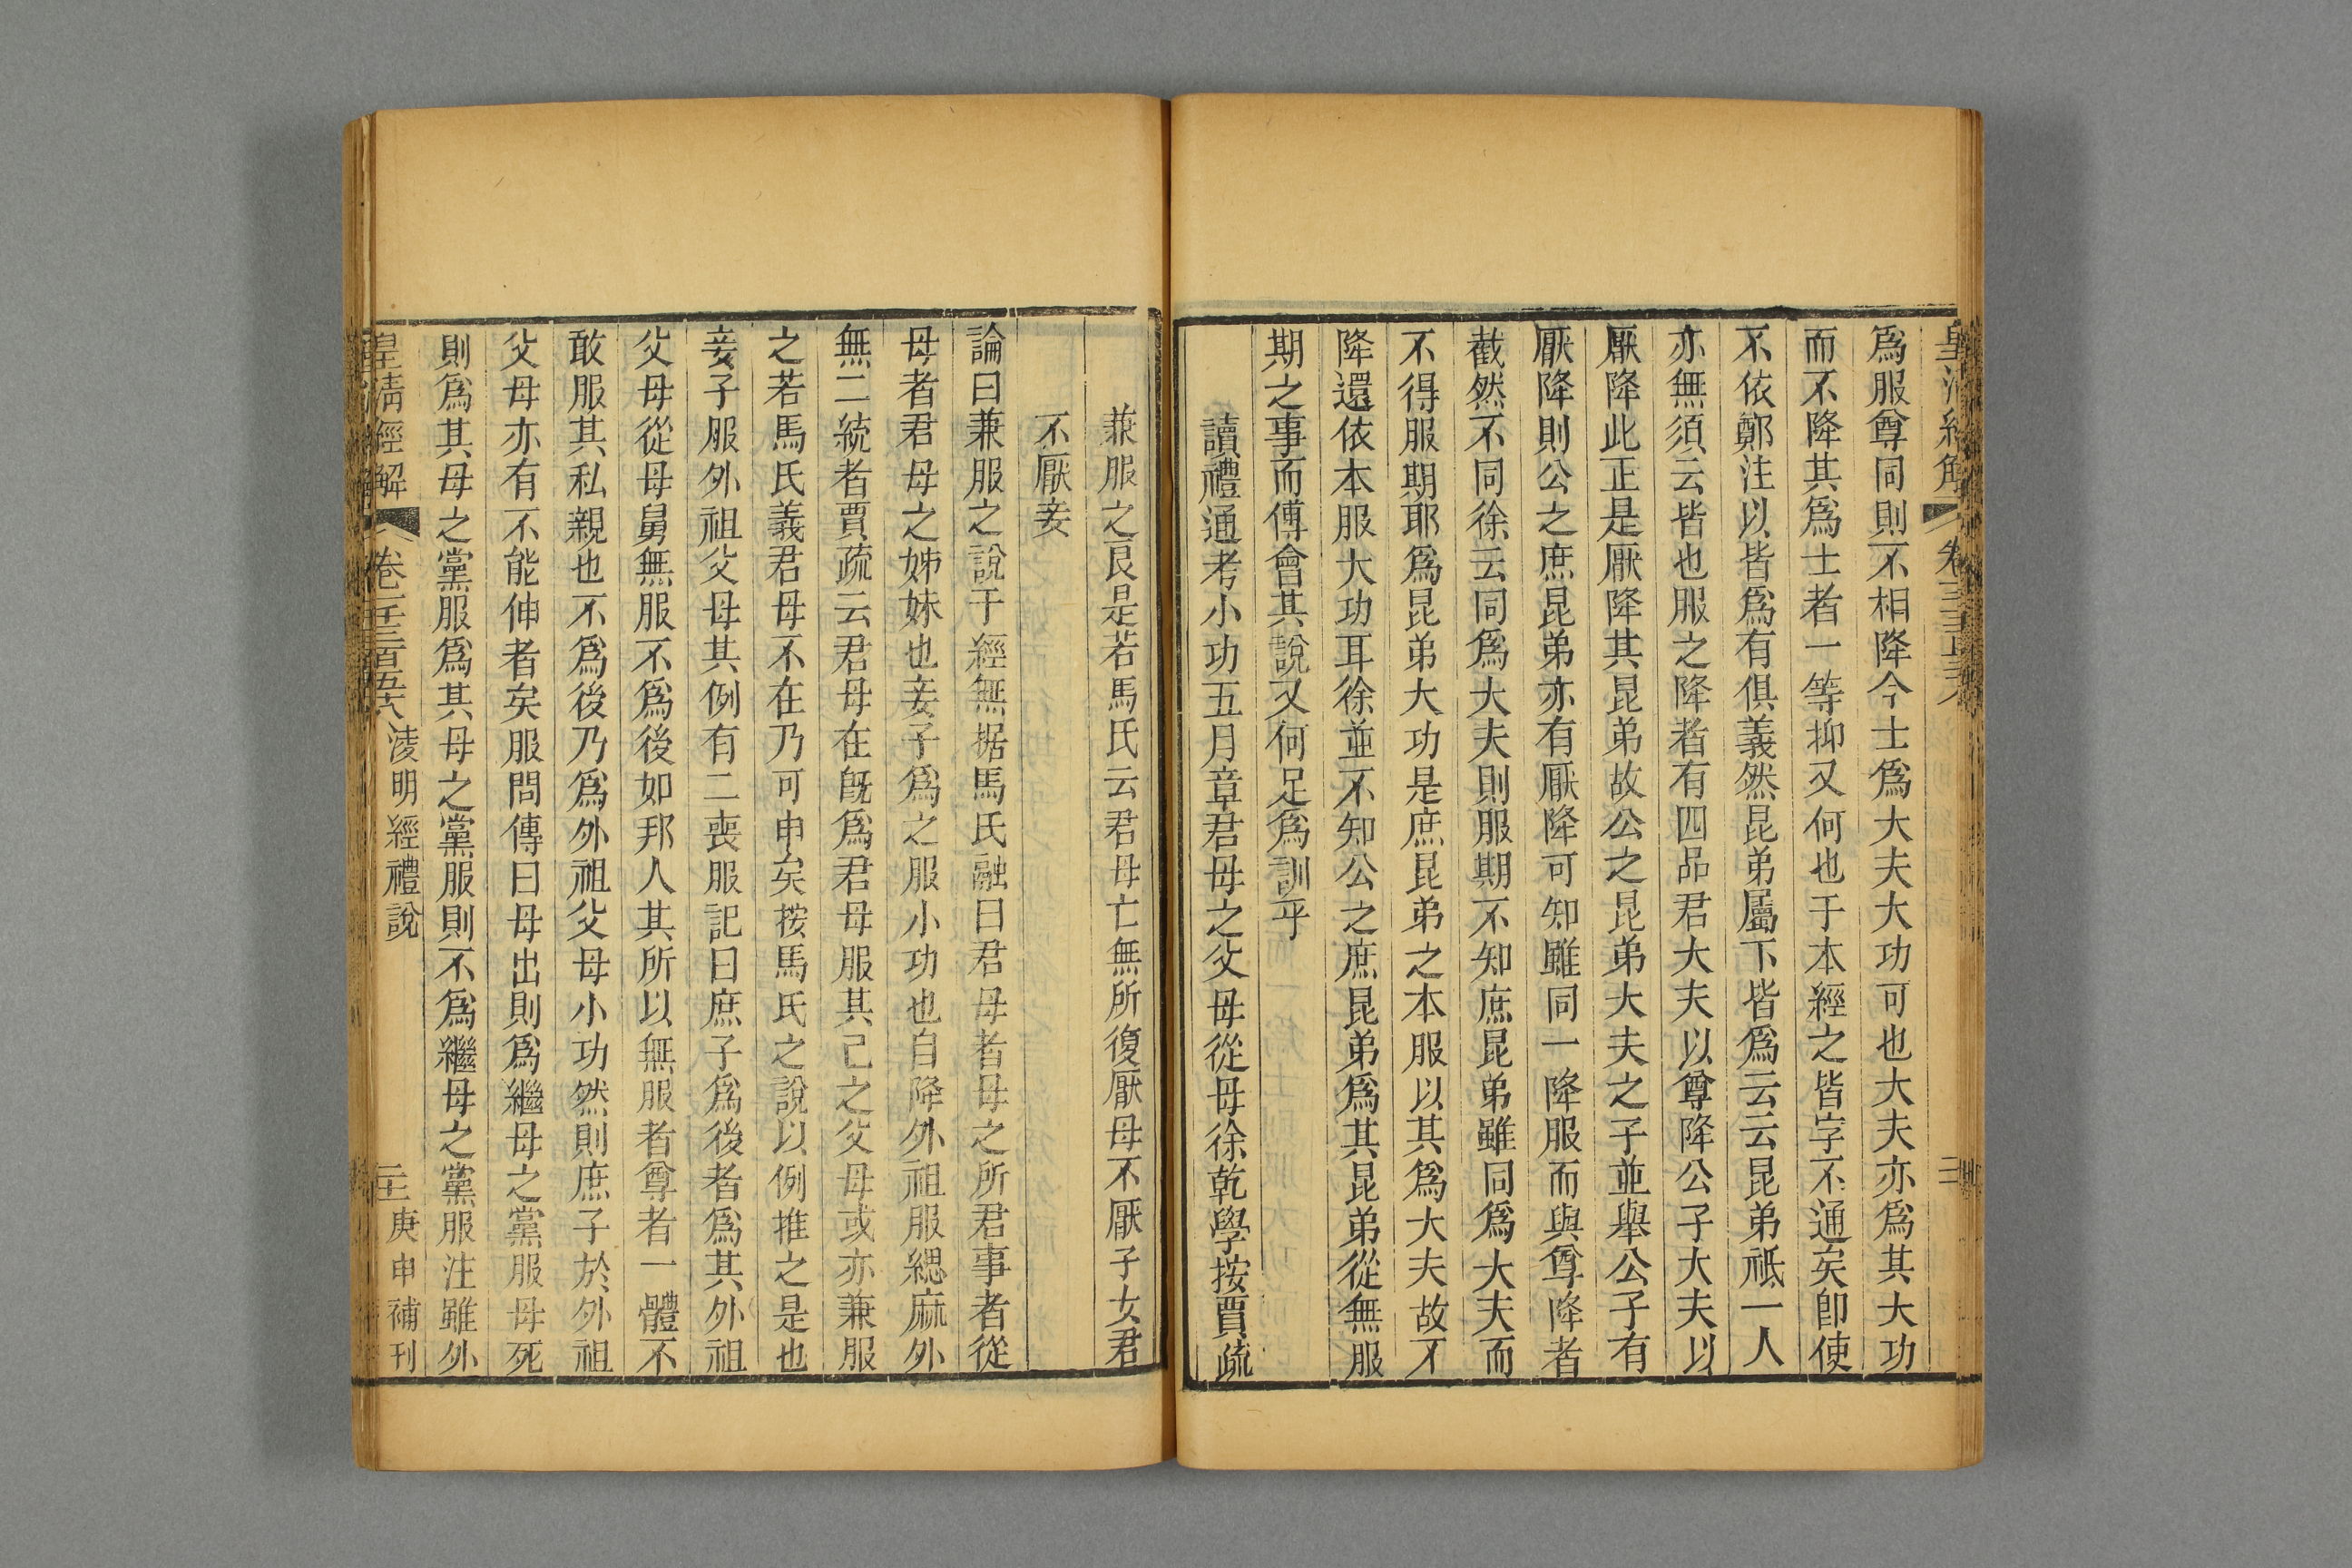 皇清經解
爲服尊同則不相降今士爲大夫大功可也大夫亦爲其大功
而不降其爲士者一等抑又何也于本經之皆字不通矣卽使
不依鄭注以皆爲有俱義然昆弟屬下皆爲云云昆弟祗一人
亦無須云皆也服之降者有四品君大夫以尊降公子大夫以
厭降此正是厭降其昆弟故公之昆弟大夫之子並舉公子有
厭降則公之庶昆弟亦有厭降可知雖同一降服而與尊降者
截然不同徐云同爲大夫則服期不知庶昆弟雖同爲大夫而
不得服期耶爲昆弟大功是庶昆弟之本服以其爲大夫故不
降還依本服大功耳徐並不知公之庶昆弟爲其昆弟從無服
期之事而傅會其說又何足爲訓乎
讀禮通考小功五月章君母之父母從母徐乾學按賈疏
兼服之艮是若馬氏云君母亡無所復厭母不厭子女君
不厭妾
論曰兼服之說于經無据馬氏融曰君母者母之所君事者從
母者君母之姊妹也妾子爲之服小功也自降外祖服緦麻外
無二統者賈疏云君母在旣爲君母服其己之父母或亦兼服
之若馬氏義君母不在乃可申矣按馬氏之說以例推之是也
妾子服外祖父母其例有二喪服記曰庶子爲後者爲其外祖
父母從母舅無服不爲後如邦人其所以無服者尊者一體不
敢服其私親也不爲後乃爲外祖父母小功然則庶子於外祖
父母亦有不能伸者矣服問傳曰母出則爲繼母之黨服母死
則爲其母之黨服爲其母之黨服則不爲繼母之黨服注雖外
皇清經解 卷一千三百五十六 淩明經禮說 二十一 庚申補刊